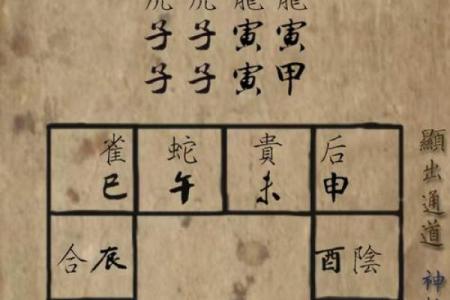 虎虎龍龍
子子寅寅
子子寅甲
雀蛇貴后
巳午未申
合辰 酉陰
顯出通道
神